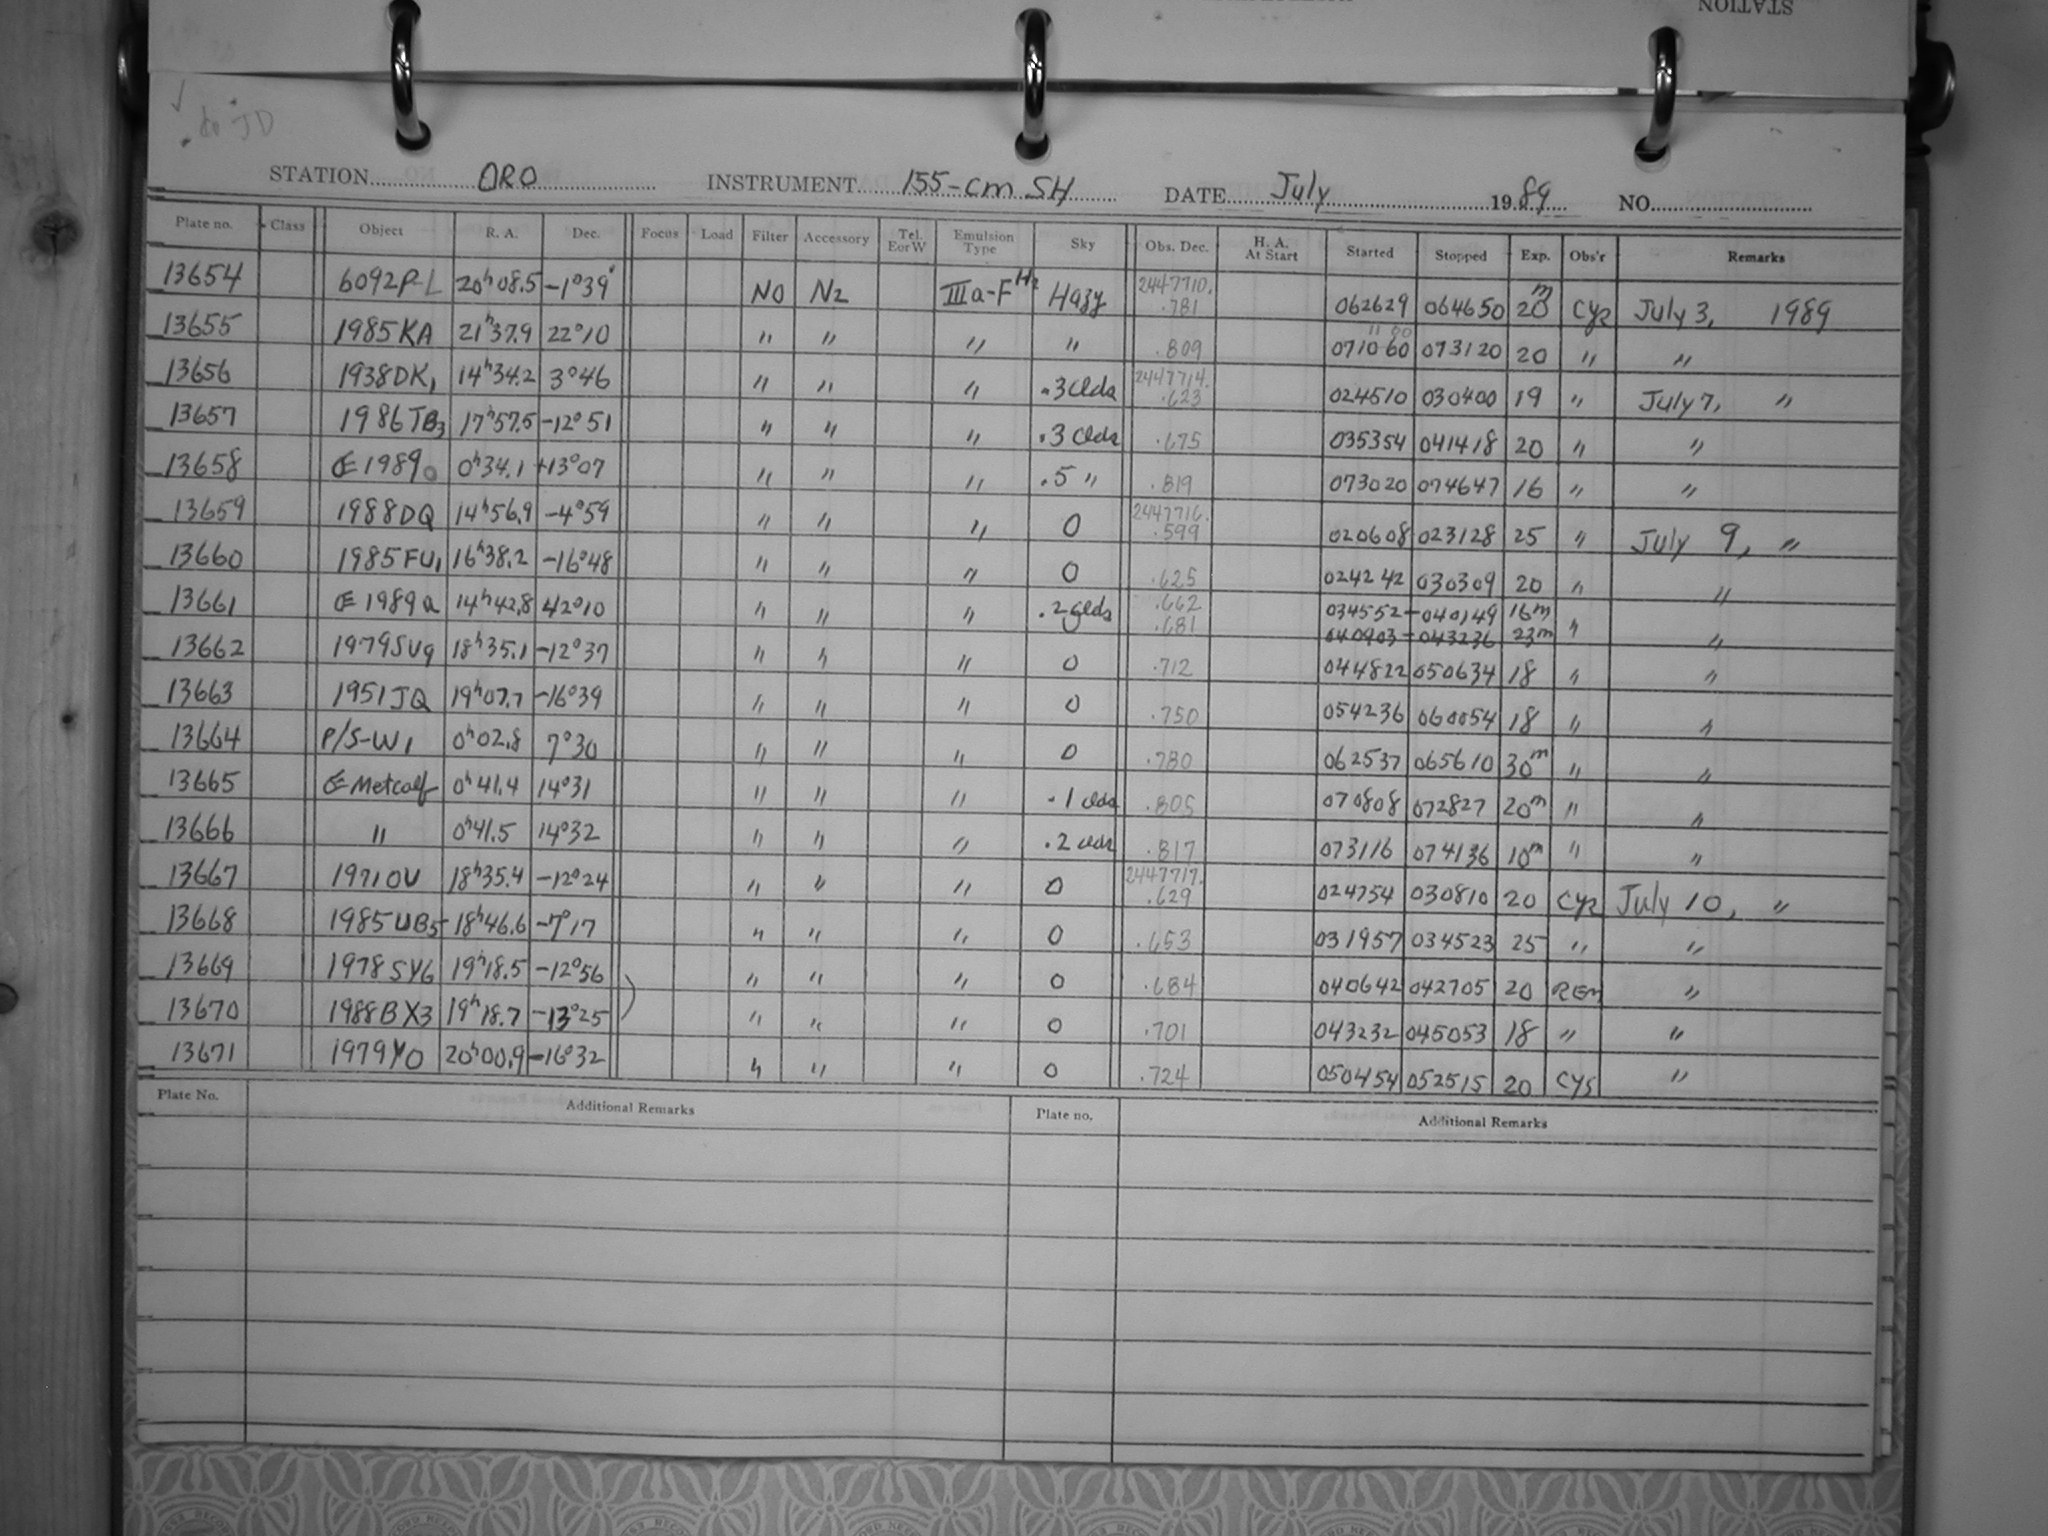 STATION
to JD
STATION ORO INSTRUMENT 155-cm SH DATE July 1989 NO.
Plate no. Class Object R. A. Dec. Focus Load Filter Accessory Tel. E or W Emulsion Type Sky Obs. Dec. H. A. At Start Started Stopped Exp. Obs'r Remarks
13654 6092P-L 20h08.5 -1°39' NO N2 IIIa-F H2 Hazy 2447710. .781 062629 064650 20m CYS July 3, 1989
13655 1985KA 21h37.9 22°10 " " " " .809 071060 11 00 073120 20 " "
13656 1938DK1 14h34.2 3°46 " " " .3 clds 2447714. .623 024510 030400 19 " July 7, "
13657 1986TB3 17h57.5 -12°51 " " " .3 clds .675 035354 041418 20 " "
13658 1989o 0h34.1 +13°07 " " " .5 " .819 073020 074647 16 " "
13659 1988DQ 14h56.9 -4°59 " " " 0 2447716. .599 020608 023128 25 " July 9, "
13660 1985FU1 16h38.2 -16°48 " " " 0 .625 024242 030309 20 " "
13661 1989a 14h42.8 42°10 " " " .2 clds .662 .681 034552-040149 16m 040903-043236 23m " "
13662 1979SU9 18h35.1 -12°37 " " " 0 .712 044822 050634 18 " "
13663 1951JQ 19h07.7 -16°39 " " " 0 .750 054236 060054 18 " "
13664 P/S-W1 0h02.8 7°30 " " " 0 .780 062537 065610 30m " "
13665 Metcalf 0h41.4 14°31 " " " .1 clds .805 070808 072827 20m " "
13666 " 0h41.5 14°32 " " " .2 clds .817 073116 074136 10m " "
13667 1971OU 18h35.4 -12°24 " " " 0 2447717. .629 024754 030810 20 CYS July 10, "
13668 1985UB5 18h46.6 -7°17 " " " 0 .653 031957 034523 25 " "
13669 1978SY6 19h18.5 -12°56 " " " 0 .684 040642 042705 20 REM "
13670 1988BX3 19h18.7 -13°25 " " " 0 .701 043232 045053 18 " "
13671 1979YO 20h00.9 -16°32 " " " 0 .724 050454 052515 20 CYS "
Plate No. Additional Remarks Plate no. Additional Remarks